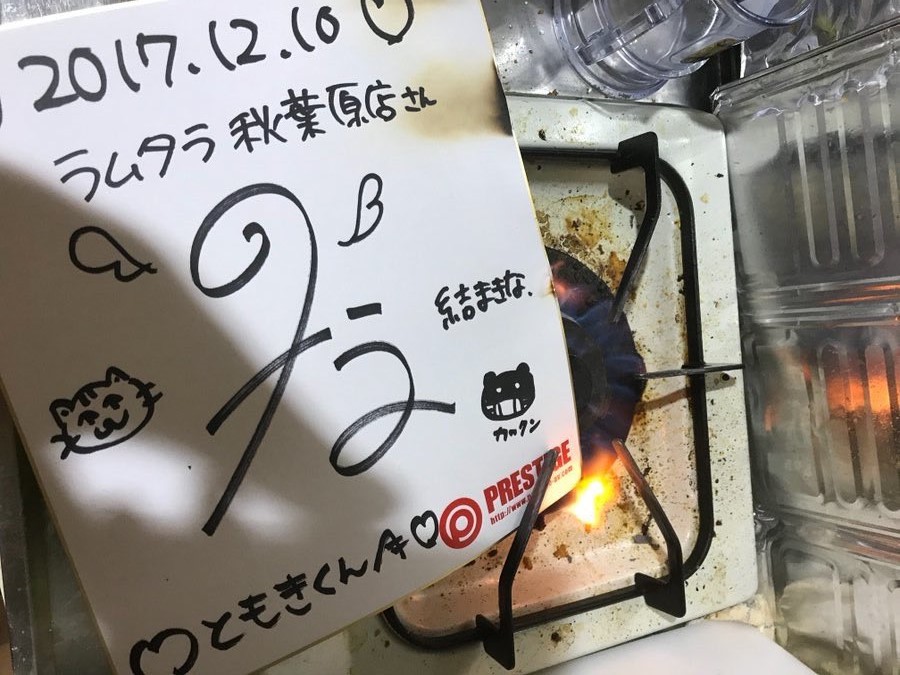 2017.12.10
ラムタラ 秋葉原店さん
結まきな.
カックン
PRESTIGE
ともきくんへ